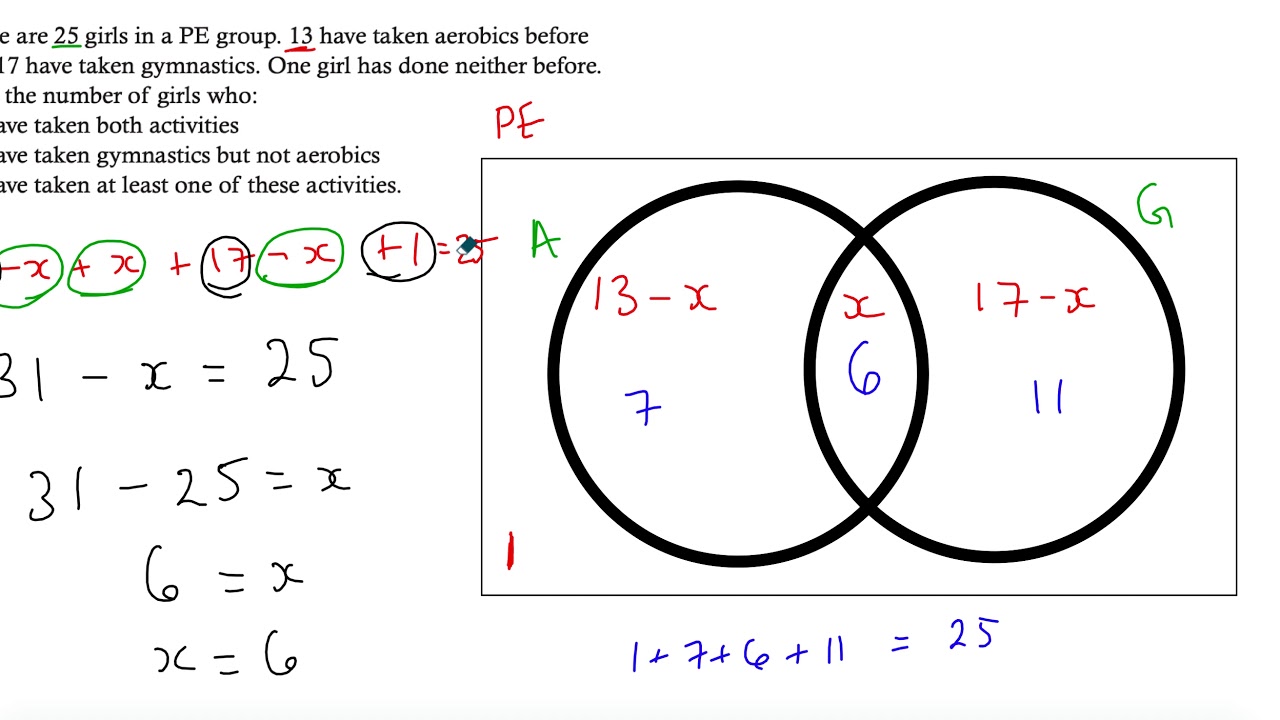 e are 25 girls in a PE group. 13 have taken aerobics before
17 have taken gymnastics. One girl has done neither before.
the number of girls who:
ave taken both activities
ave taken gymnastics but not aerobics
ave taken at least one of these activities.
PE
A
G
-x + x + 17 - x +1 = 25
13 - x
x
17 - x
31 - x = 25
7
6
11
31 - 25 = x
6 = x
1
x = 6
1 + 7 + 6 + 11 = 25